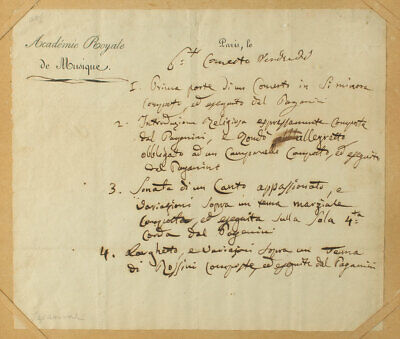 Académie Royale
de Musique.
Paris, le
6.t Concerto Vendredi
1. Prima parte di un Concerto in Si minore
composto, ed eseguito dal Paganini
2. Introduzione Religiosa espressamente composta
dal Paganini, e Rondò allegretto
obbligato ad un Campanello Composto, ed eseguito
dal Paganini
3. Sonata di un Canto appassionato, e
variazioni sopra un tema marziale
composta, ed eseguita sulla sola 4.ta
Corda dal Paganini
4. Larghetto e variazioni sopra un Tema
di Rossini Composte ed eseguite dal Paganini